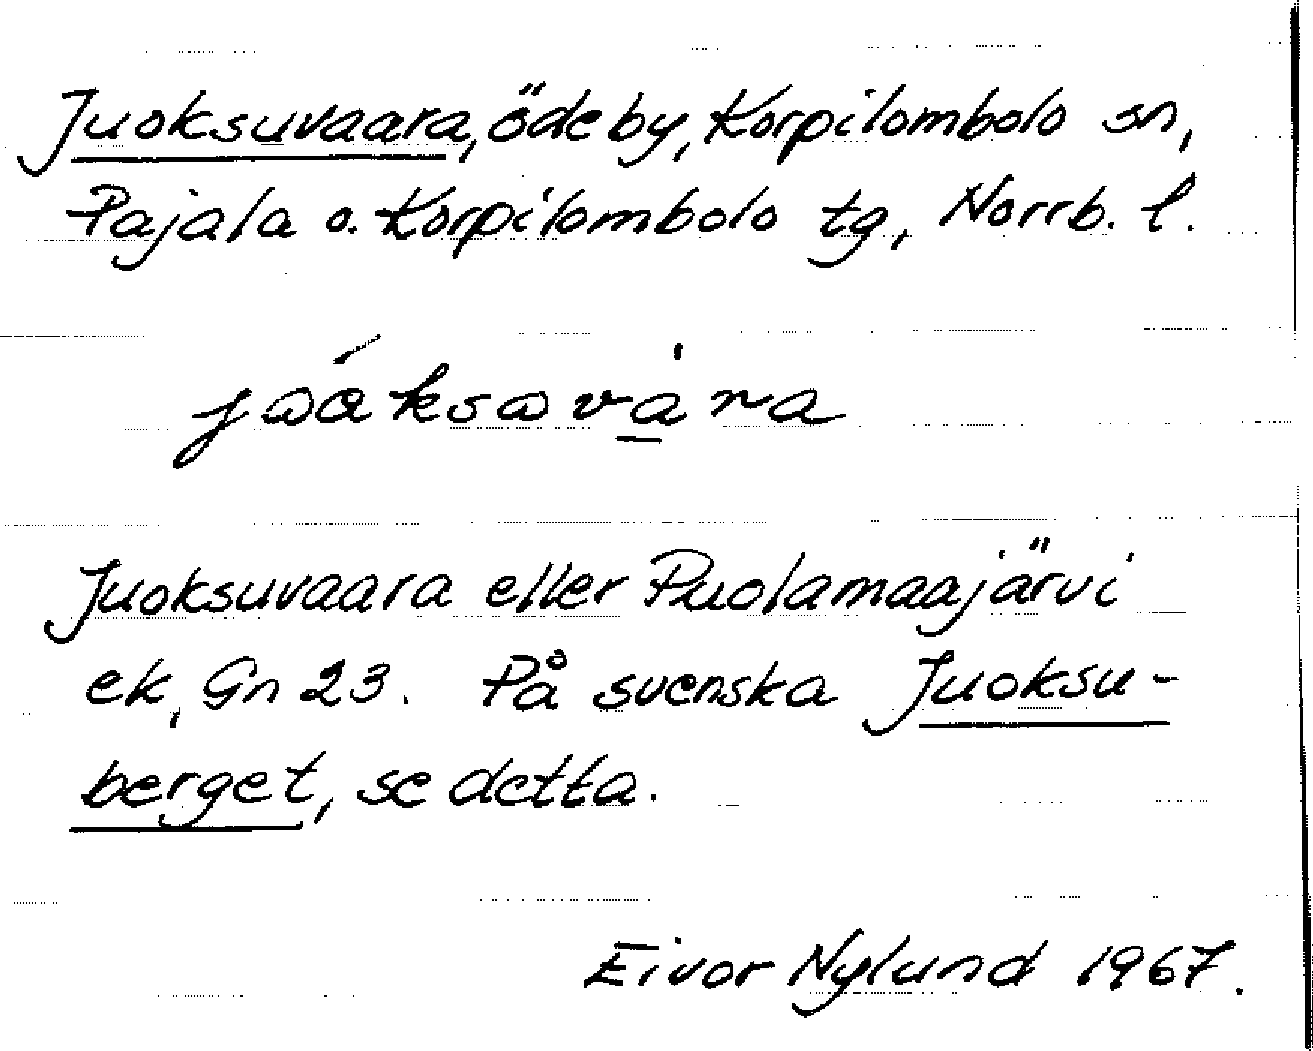 Juoksuvaara, ödeby, Korpilombolo sn,
Pajala o. Korpilombolo tg, Norrb. l.
jωáksωvà̱ra
Juoksuvaara eller Puolamaajärvi
ek, Gn 23. På svenska Juoksu-
berget, se detta.
Eivor Nylund 1967.